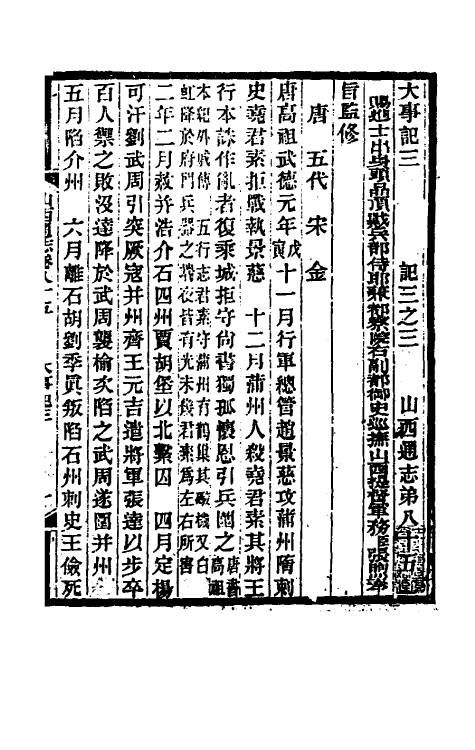 大事記三　記三之三　山西通志第八十五
賜進士出身頭品頂戴兵部侍郎兼都察院右副都御史巡撫山西提督軍務張煦奉
旨監修
唐　五代　宋　金
唐高祖武德元年戊寅十一月行軍總管趙景慈攻蒲州隋刺
史堯君素拒戰執景慈　十二月蒲州人殺堯君素其將王
行本誅作亂者復乘城拒守尚書獨孤懷恩引兵圍之唐書高祖
本紀外戚傳　五行志君素守蒲州有鵲巢其礮機又白
虹降於府門兵器之端夜皆有光未幾君素為左右所害
二年二月赦并浩介石四州賈胡堡以北繫囚　四月定楊
可汗劉武周引突厥寇并州齊王元吉遣將軍張達以步卒
百人禦之敗沒達降於武周襲榆次陷之武周遂圍并州
五月陷介州　六月離石胡劉季真叛陷石州刺史王儉死
山西通志卷八十五　大事記三　一